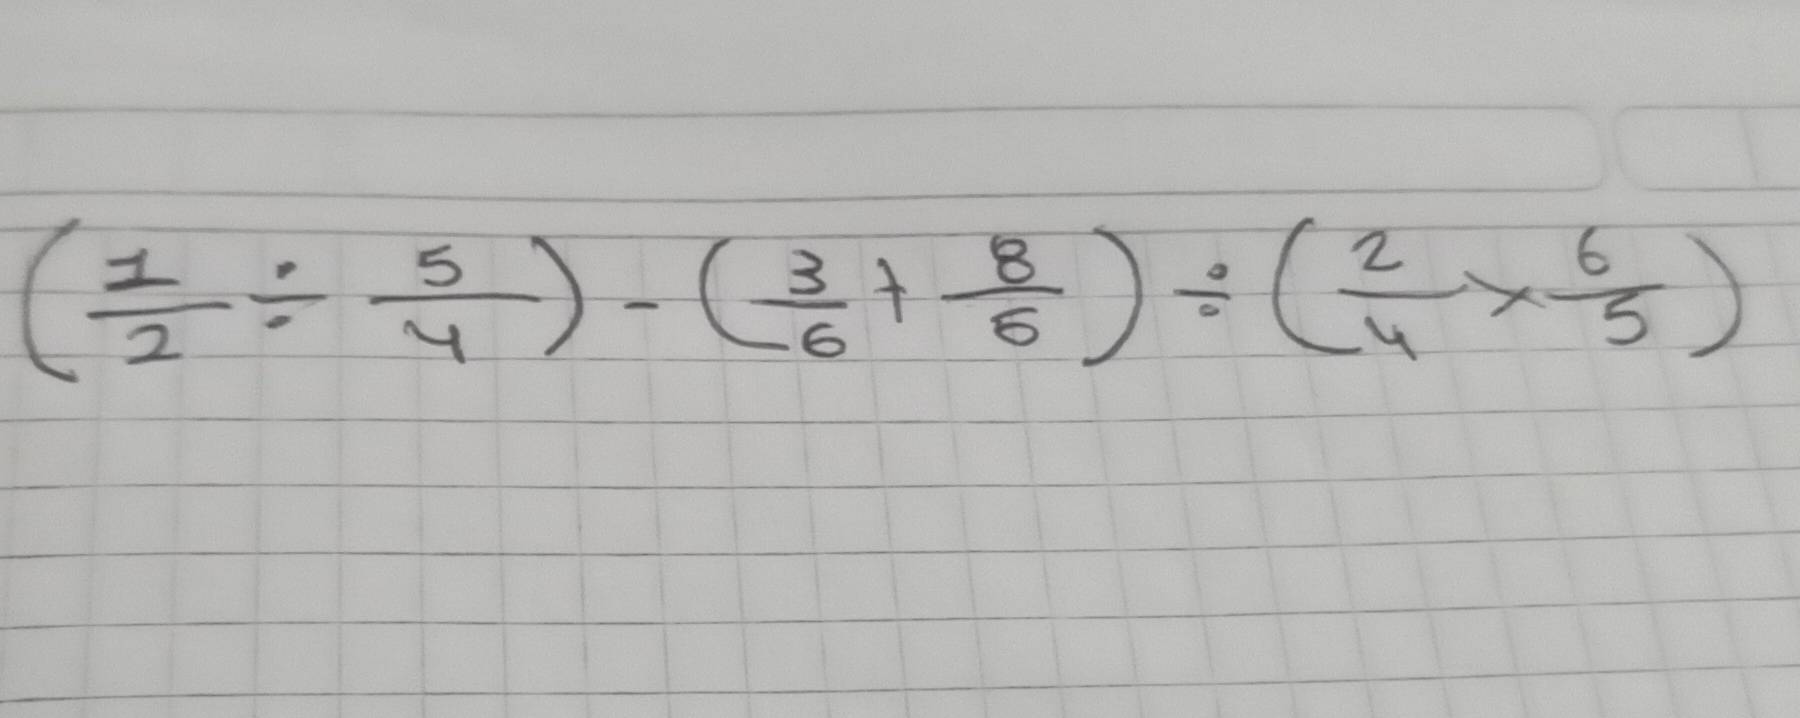 (1/2 ÷ 5/4) - (3/6 + 8/6) ÷ (2/4 × 6/5)